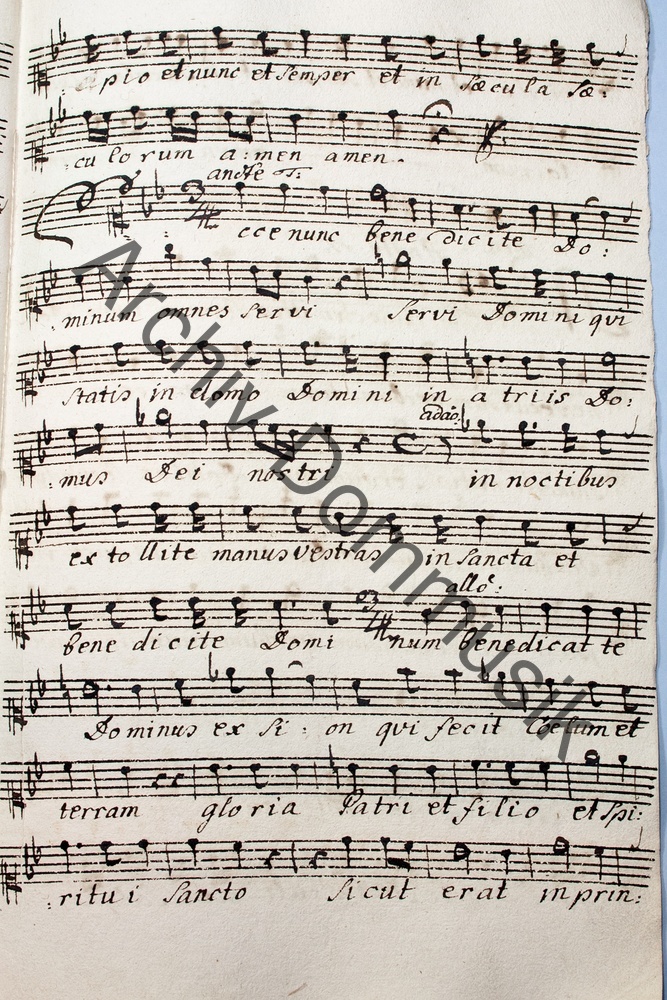 :pio et nunc et semper et in sæcula sæ:
:culorum a:men amen.
andte T:
cce nunc benedicite Do:
:minum omnes servi servi Domini qui
statis in domo Domini in atriis Do:
adaō:
:mus Dei nostri in noctibus
extollite manus vestras in sancta et
allō:
benedicite Dominum benedicat te
Dominus ex Si:on qui fecit Coelum et
terram gloria Patri et filio et Spi:
:ritui Sancto sicut erat in prin:
Archiv Dommusik